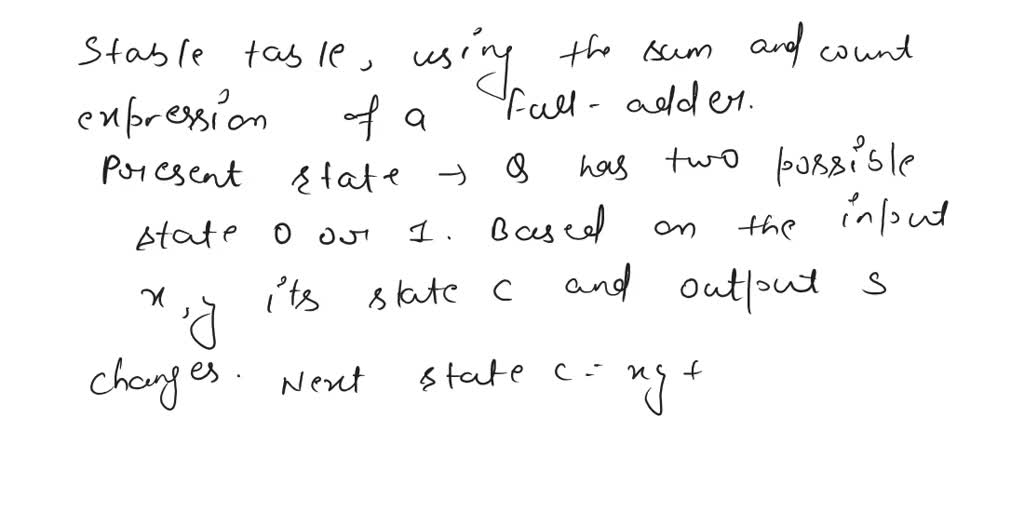 Stable table, using the sum and count
expression of a Full-adder.
Present state → Q has two possible
state 0 or 1. Based on the input
x, y its state c and output s
changes. Next state c = xy +